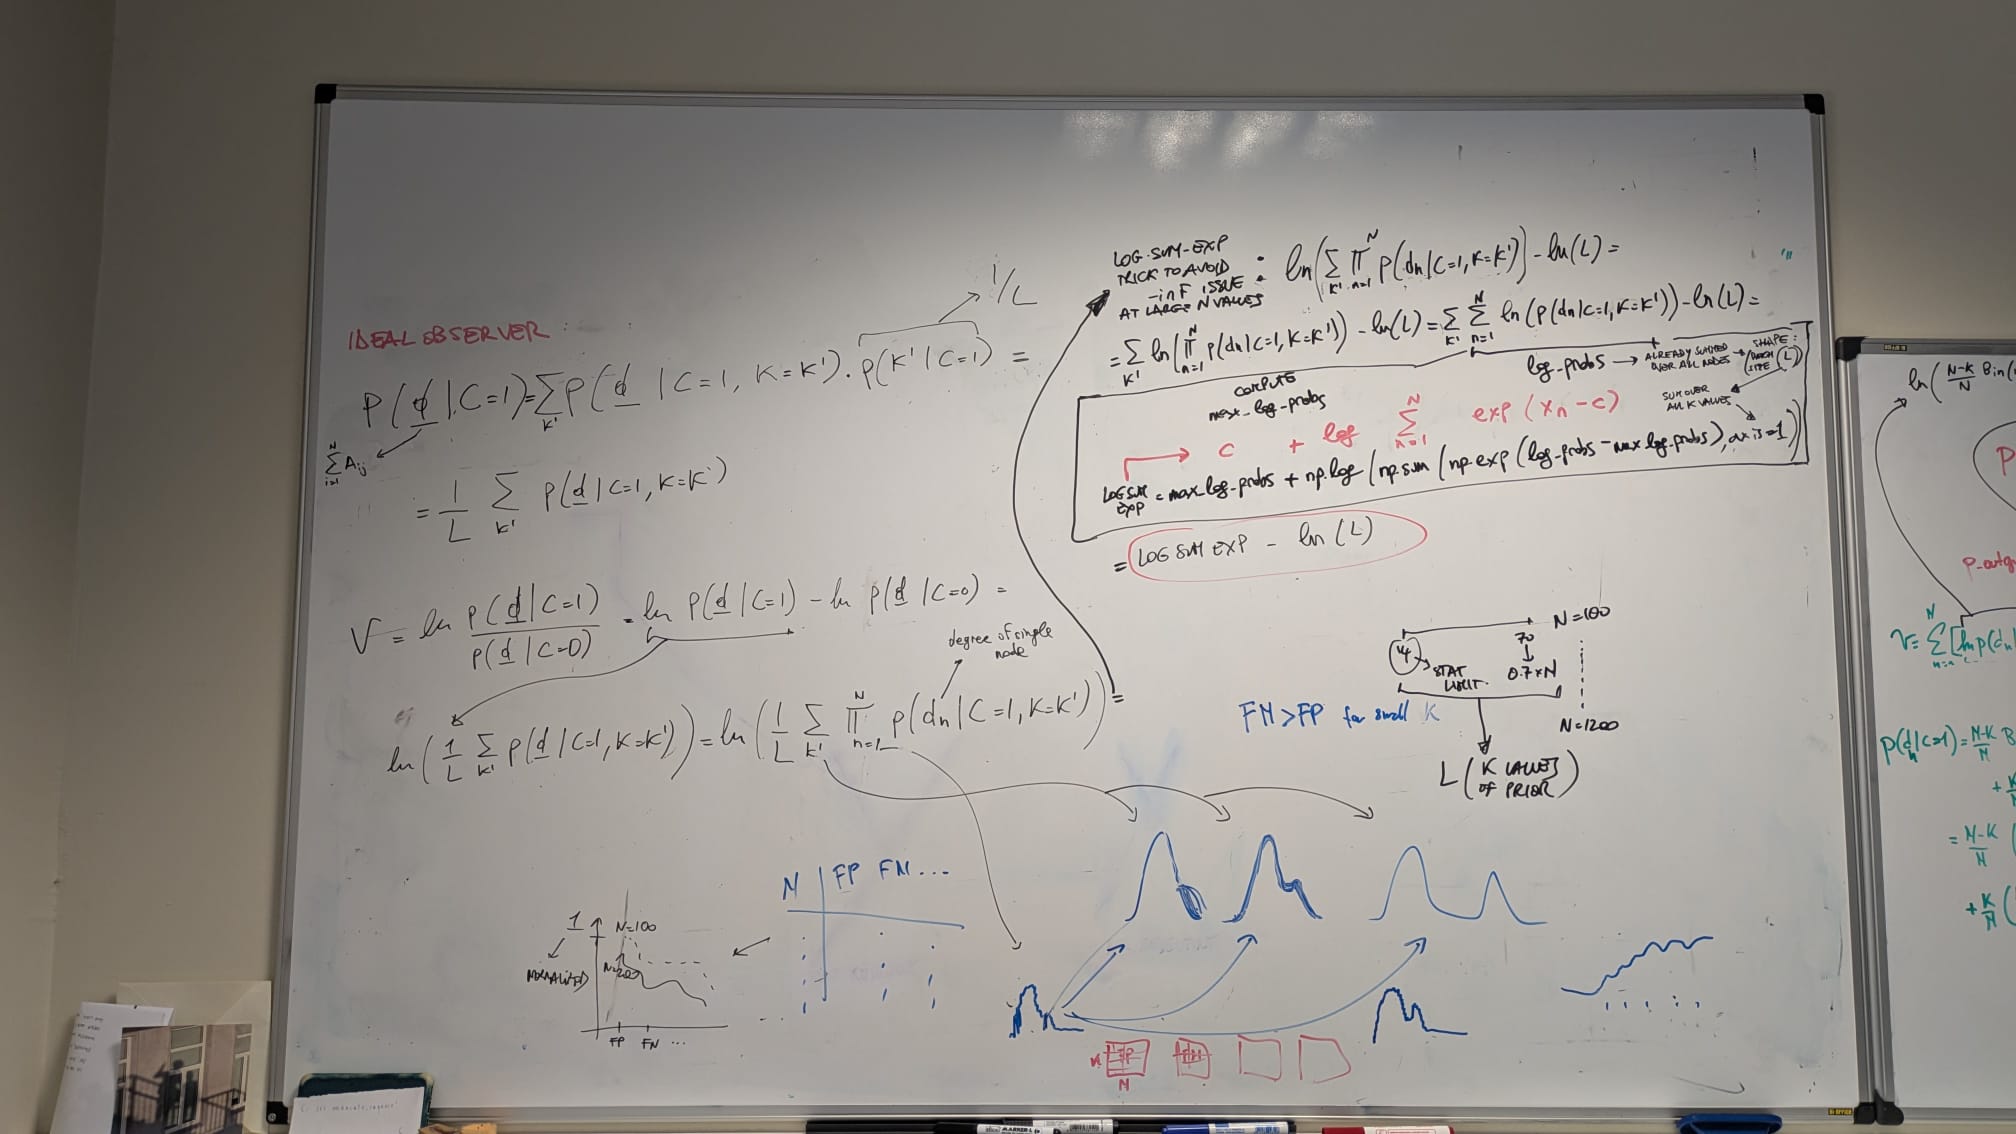 IDEAL OBSERVER :
P(d | C=1) = Σ_K' P(d | C=1, K=K') · p(K' | C=1) =
1/L
Σ_{i=1}^N A_ij
= 1/L Σ_K' P(d | C=1, K=K')
V = ln P(d | C=1) / P(d | C=0) = ln P(d | C=1) - ln P(d | C=0) =
degree of single
node
ln(1/L Σ_K' P(d | C=1, K=K')) = ln(1/L Σ_K' Π_{n=1}^N p(dn | C=1, K=K')) =
LOG-SUM-EXP
TRICK TO AVOID
-inF ISSUE
AT LARGE N VALUES
: ln(Σ_K' Π_{n=1}^N p(dn | C=1, K=K')) - ln(L) =
= Σ_K' ln(Π_{n=1}^N p(dn | C=1, K=K')) - ln(L) = Σ_K' Σ_{n=1}^N ln(p(dn | C=1, K=K')) - ln(L) =
log_probs → ALREADY SUMMED
OVER ALL NODES → SHAPE:
(BATCH SIZE, L)
SUM OVER
ALL K VALUES
COMPUTE
max_log_probs
c + log Σ_{n=1}^N exp(xn - c)
LOG SUM
EXP = max_log_probs + np.log(np.sum(np.exp(log_probs - max_log_probs), axis=1))
= LOG SUM EXP - ln(L)
N=100
4 → STAT
LIMIT
70
↓
0.7×N
N=1200
L (K VALUES
OF PRIOR)
FN>FP for small K
N | FP FN ...
1
NORMALIZED
N=100
N=200
FP FN ...
K FP
N
FN
ln(N-K/N Bin(
V = Σ_{n=1}^N [ln p(dn|
p(dn|C=1) = N-K/N B
+ K/N
= N-K/N (
+ K/N (